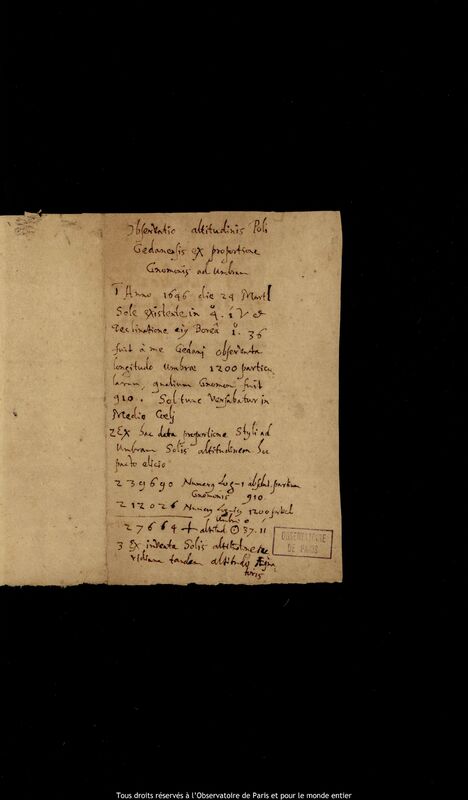 Observatio altitudinis Poli
Gedanensis ex proportione
Gnomonis ad Umbram
1 Anno 1646 die 24 Martl
Sole existente in 4°. 1' V et
declinatione eiy Boreâ 1°. 36
fuit à me Gedani observata
longitudo Umbræ 1200 particu
larum, qualium Gnomon fuit
910. Sol tunc versabatur in
Medio Coeli
2 Ex hac data proportione Styli ad
Umbram Solis altitudinem hoc
pacto elicio
239690 Numery Log-i absolut. partium
Gnomonis 910
212026 Numery Log-iy 1200 partel
Umbræ
27664 + altitud ☉ 37°. 11'
3 Ex inventa Solis altitudine me
ridiana tandem altitudo Æqua
toris
OBSERVATOIRE
DE PARIS
Tous droits réservés à l'Observatoire de Paris et pour le monde entier